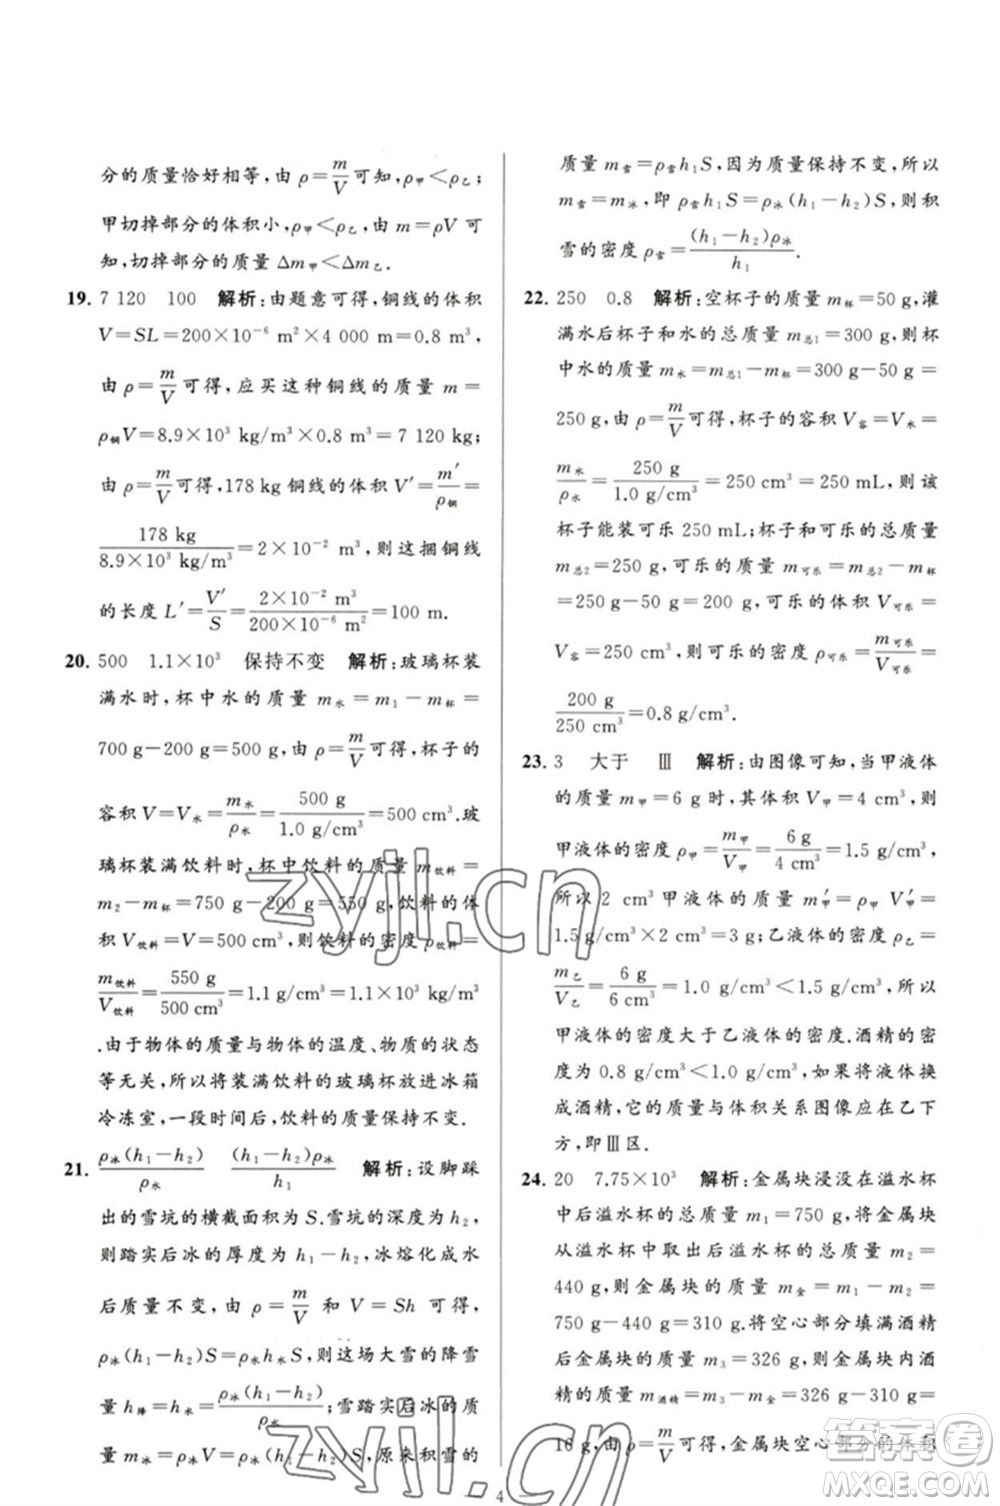 分的质量恰好相等,由 ρ=m/V 可知,ρ甲<ρ乙;
甲切掉部分的体积小,ρ甲<ρ乙,由 m=ρV 可
知,切掉部分的质量 Δm甲<Δm乙.
19. 7 120 100 解析:由题意可得,铜线的体积
V=SL=200×10⁻⁶ m²×4 000 m=0.8 m³,
由 ρ=m/V 可得,应买这种铜线的质量 m=
ρ铜V=8.9×10³ kg/m³×0.8 m³=7 120 kg;
由 ρ=m/V 可得,178 kg铜线的体积 V′=m′/ρ铜=
178 kg/8.9×10³ kg/m³=2×10⁻² m³,则这捆铜线
的长度 L′=V′/S=2×10⁻² m³/200×10⁻⁶ m²=100 m.
20. 500 1.1×10³ 保持不变 解析:玻璃杯装
满水时,杯中水的质量 m水=m₁-m杯=
700 g-200 g=500 g,由 ρ=m/V 可得,杯子的
容积 V=V水=m水/ρ水=500 g/1.0 g/cm³=500 cm³;玻
璃杯装满饮料时,杯中饮料的质量 m饮料=
m₂-m杯=750 g-200 g=550 g,饮料的体
积 V饮料=V=500 cm³,则饮料的密度 ρ饮料=
m饮料/V饮料=550 g/500 cm³=1.1 g/cm³=1.1×10³ kg/m³
.由于物体的质量与物体的温度、物质的状态
等无关,所以将装满饮料的玻璃杯放进冰箱
冷冻室,一段时间后,饮料的质量保持不变.
21. ρ冰(h₁-h₂)/ρ水 (h₁-h₂)ρ冰/h₁ 解析:设脚踩
出的雪坑的横截面积为 S.雪坑的深度为 h₂,
则踏实后冰的厚度为 h₁-h₂,冰熔化成水
后质量不变,由 ρ=m/V 和 V=Sh 可得,
ρ冰(h₁-h₂)S=ρ水h水S,则这场大雪的降雪
量 h降=h水=ρ冰(h₁-h₂)/ρ水;雪踏实后冰的质
量 m冰=ρ冰V=ρ冰(h₁-h₂)S,原来积雪的
质量 m雪=ρ雪h₁S,因为质量保持不变,所以
m雪=m冰,即 ρ雪h₁S=ρ冰(h₁-h₂)S,则积
雪的密度 ρ雪=(h₁-h₂)ρ冰/h₁.
22. 250 0.8 解析:空杯子的质量 m杯=50 g,灌
满水后杯子和水的总质量 m总1=300 g,则杯
中水的质量 m水=m总1-m杯=300 g-50 g=
250 g,由 ρ=m/V 可得,杯子的容积 V容=V水=
m水/ρ水=250 g/1.0 g/cm³=250 cm³=250 mL,则该
杯子能装可乐 250 mL;杯子和可乐的总质量
m总2=250 g,可乐的质量 m可乐=m总2-m杯=
250 g-50 g=200 g,可乐的体积 V可乐=
V容=250 cm³,则可乐的密度 ρ可乐=m可乐/V可乐=
200 g/250 cm³=0.8 g/cm³.
23. 3 大于 Ⅲ 解析:由图像可知,当甲液体
的质量 m甲=6 g 时,其体积 V甲=4 cm³,则
甲液体的密度 ρ甲=m甲/V甲=6 g/4 cm³=1.5 g/cm³,
所以 2 cm³ 甲液体的质量 m′甲=ρ甲V′甲=
1.5 g/cm³×2 cm³=3 g;乙液体的密度 ρ乙=
m乙/V乙=6 g/6 cm³=1.0 g/cm³<1.5 g/cm³,所以
甲液体的密度大于乙液体的密度.酒精的密
度为 0.8 g/cm³<1.0 g/cm³,如果将液体换
成酒精,它的质量与体积关系图像应在乙下
方,即Ⅲ区.
24. 20 7.75×10³ 解析:金属块浸没在溢水杯
中后溢水杯的总质量 m₁=750 g,将金属块
从溢水杯中取出后溢水杯的总质量 m₂=
440 g,则金属块的质量 m金=m₁-m₂=
750 g-440 g=310 g;将空心部分填满酒精
后金属块的总质量 m₃=326 g,则金属块内酒
精的质量 m酒精=m₃-m金=326 g-310 g=
16 g,由 ρ=m/V 可得,金属块空心部分的体积
4
zyjl.cn
zyjl.cn
答案卷
MXQE.COM